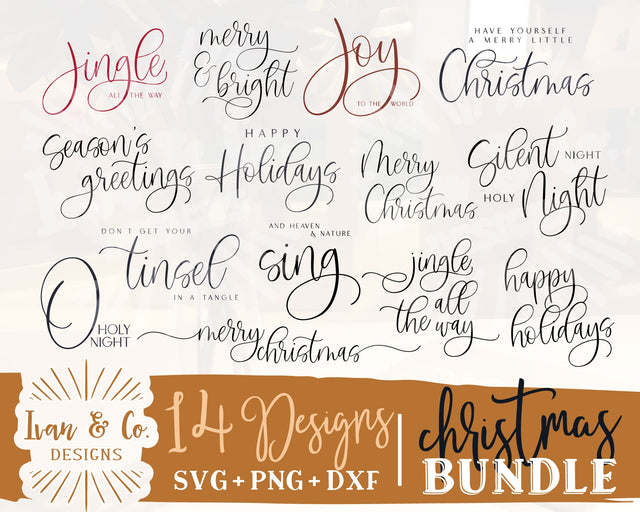 Jingle
ALL THE WAY
merry
& bright
Joy
TO THE WORLD
HAVE YOURSELF
A MERRY LITTLE
Christmas
Season's
greetings
HAPPY
Holidays
Merry
Christmas
Silent NIGHT
HOLY Night
DON'T GET YOUR
tinsel
IN A TANGLE
AND HEAVEN
& NATURE
sing
jingle
all
the way
happy
holidays
O HOLY
NIGHT
merry christmas
Ivan & Co.
DESIGNS
14 Designs
SVG + PNG + DXF
christmas
BUNDLE